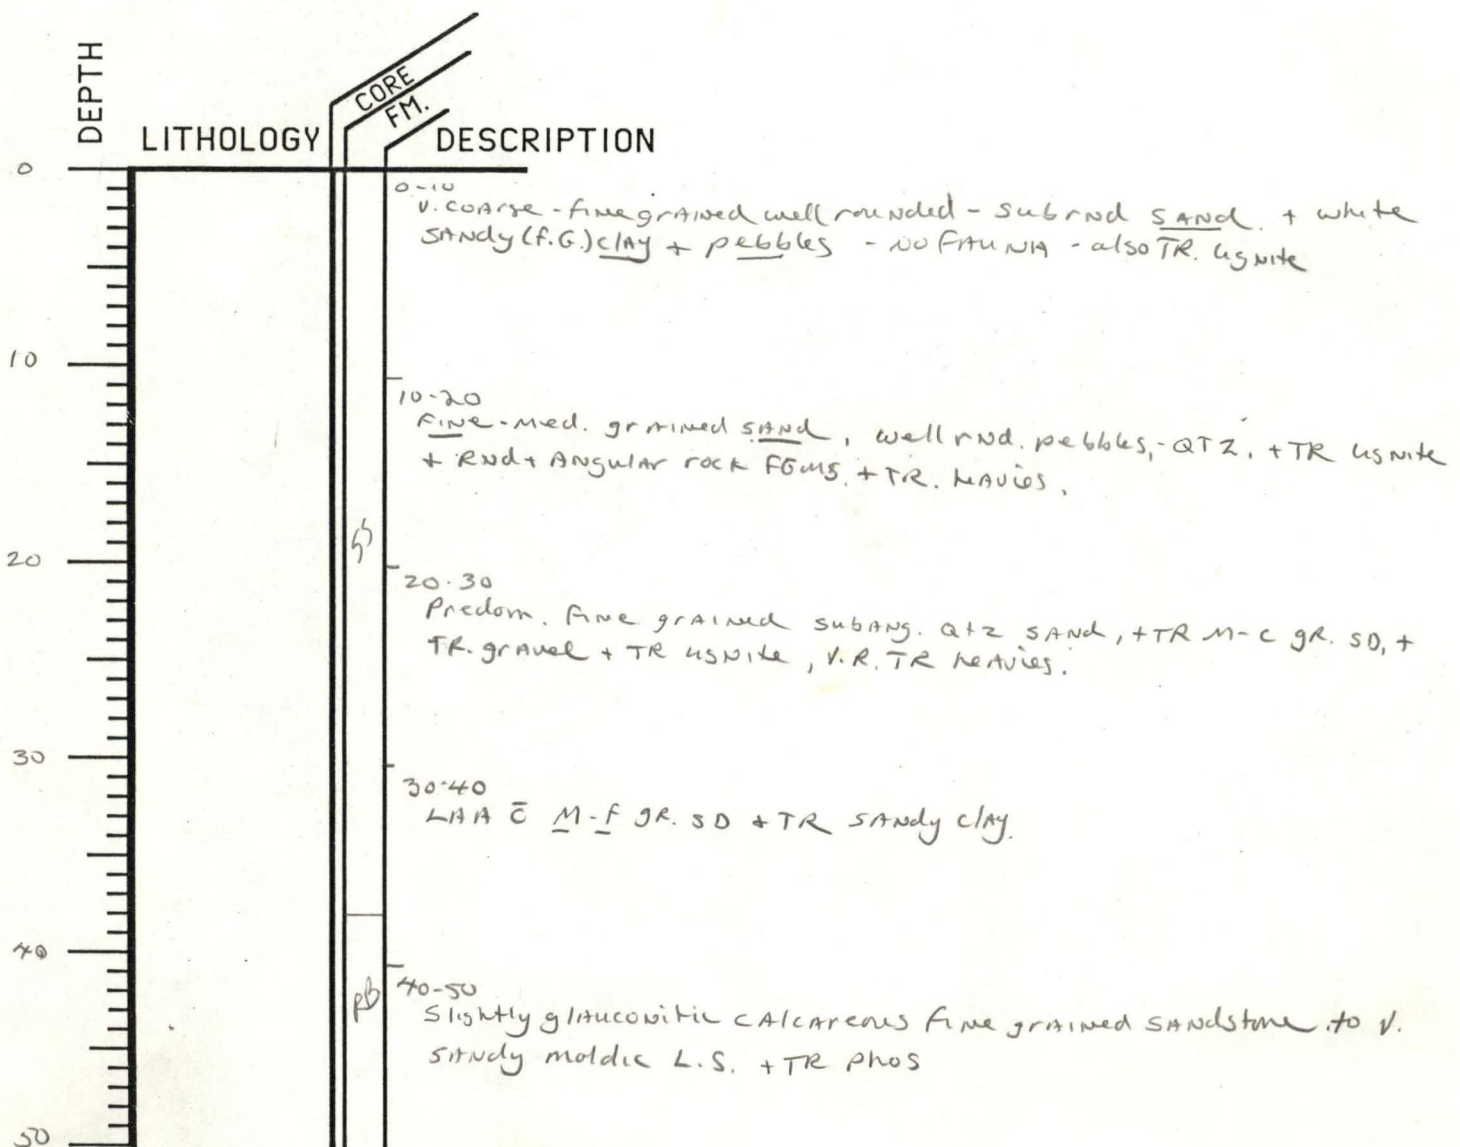 DEPTH
LITHOLOGY
CORE
FM.
DESCRIPTION
0
0-10
V. coarse - fine grained well rounded - subrnd sand. + white
sandy (f.G.) clay + pebbles - no fauna - also TR. lignite
10
10-20
Fine-med. grained sand, well rnd. pebbles,-QTZ, +TR lignite
+ Rnd + Angular rock FGMS. + TR. heavies.
20
20-30
Predom. fine grained subang. Qtz sand, +TR M-C gR. SD, +
TR. gravel + TR lignite, V.R. TR heavies.
30
30-40
LAA c̄ M-f gR. SD + TR sandy clay.
40
pb
40-50
Slightly glauconitic calcareous fine grained sandstone to V.
sandy moldic L.S. + TR phos
50